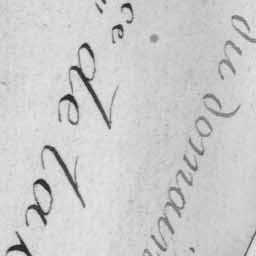 du domain
ce de tab